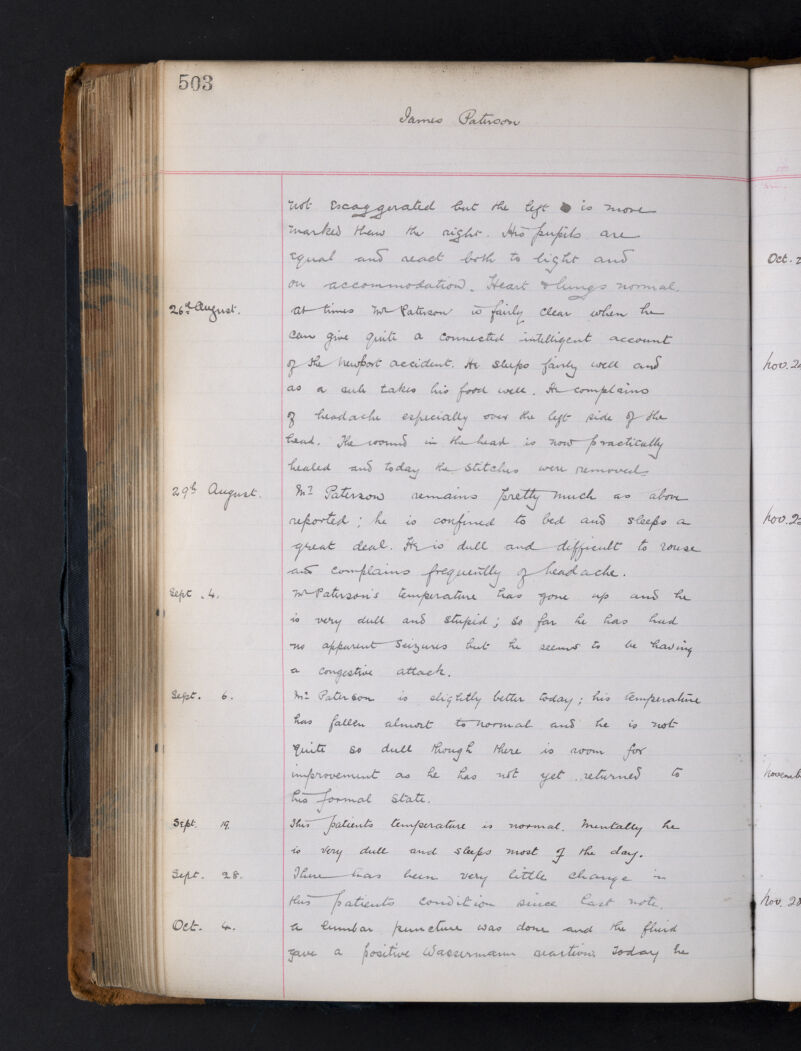 503
James Paterson
not exaggerated but the left is more
marked than the right. His pupils are
equal and react both to light and
on accommodation. Heart & lungs normal.
26th August. At times Mr Paterson is fairly clear when he
can give quite a connected intelligent account
of the Newport accident. He sleeps fairly well and
as a rule takes his food well. He complains
of headache especially over the left side of the
head. The wound in the head is now practically
healed and today the stitches were removed.
29th August. Mr Paterson remains pretty much as above
reported; he is confined to bed and sleeps a
great deal. He is dull and difficult to rouse
and complains frequently of headache.
Sept. 4. Mr Paterson's temperature has gone up and he
is very dull and stupid; so far he has had
no apparent seizures but he seems to be having
a congestive attack.
Sept. 6. Mr Paterson is slightly better today; his temperature
has fallen almost to normal and he is not
quite so dull though there is room for
improvement as he has not yet returned to
his formal state.
Sept. 19. This patients temperature is normal. Mentally he
is very dull and sleeps most of the day.
Sept. 28. There has been very little change in
this patients condition since last note.
Oct. 4. A lumbar puncture was done and the fluid
gave a positive Wassermann reaction. Today he
Oct. 2
Nov. 2
Nov. 2
Novemb
Nov. 28